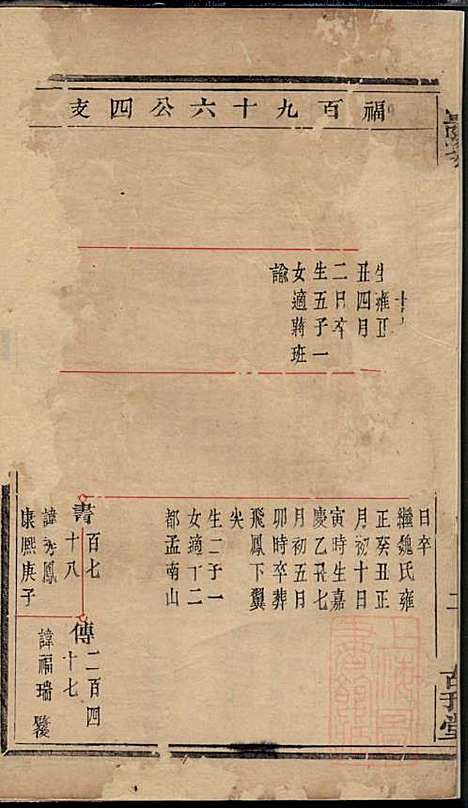 福百九十六公四支
生雍正
丑四月
二日卒
生五子一
女適蔣班
諭
日卒
繼魏氏雍
正癸丑正
月初十日
寅時生嘉
慶乙丑七
月初五日
卯時卒葬
飛鳳下翼
尖
生二子一
女適丁二
都孟南山
書百七
十八
諱 鳳
康熙庚子
傳二百四
十七
諱福瑞